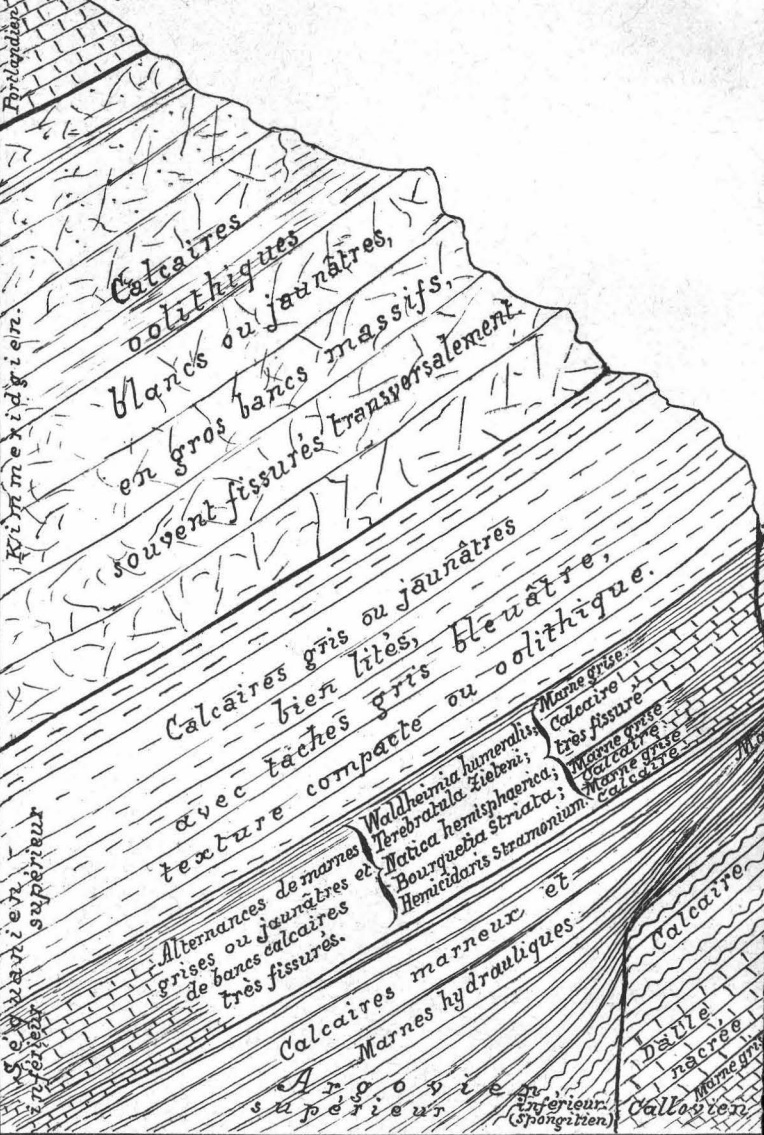 Portlandien
Kimmeridgien.
Calcaires
oolithiques
blancs ou jaunâtres,
en gros bancs massifs,
souvent fissurés transversalement.
Calcaires gris ou jaunâtres
bien lités,
avec taches gris bleuâtre,
texture compacte ou oolithique.
Séquanien
supérieur
inférieur
Alternances de marnes
grises ou jaunâtres et
de bancs calcaires
très fissurés.
Waldheimia humeralis;
Terebratula Zieteni;
Natica hemisphaerica;
Bourquetia striata;
Hemicidaris Stramonium.
Marne grise
Calcaire
très fissuré
Marne grise
Calcaire
Marne grise
Calcaire
Calcaires marneux et
Marnes hydrauliques
Argovien
supérieur
inférieur
(spongitien)
Calcaire
Dalle
nacrée
Marne gris
Callovien